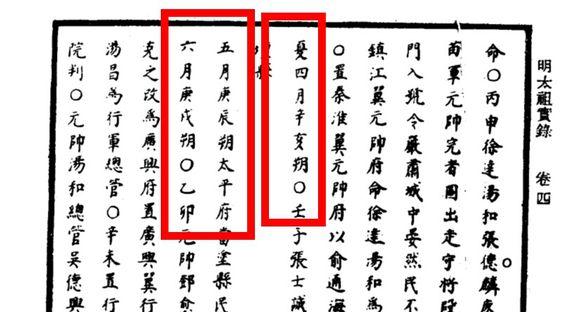 明太祖實錄 卷四
命○丙申徐達湯和張德麟
苗軍元帥完者圖出走守將段
門入號令嚴肅城中晏然民不
鎮江翼元帥府命徐達湯和為
○置秦淮翼元帥府以俞通海
夏四月辛亥朔○壬子張士誠
縣
五月庚辰朔太平府當塗縣民
六月庚戌朔○乙卯元帥鄧愈
克之改為廣興府置廣興翼行
湯昌為行軍總管○辛未置行
院判○元帥湯和總管吳德興